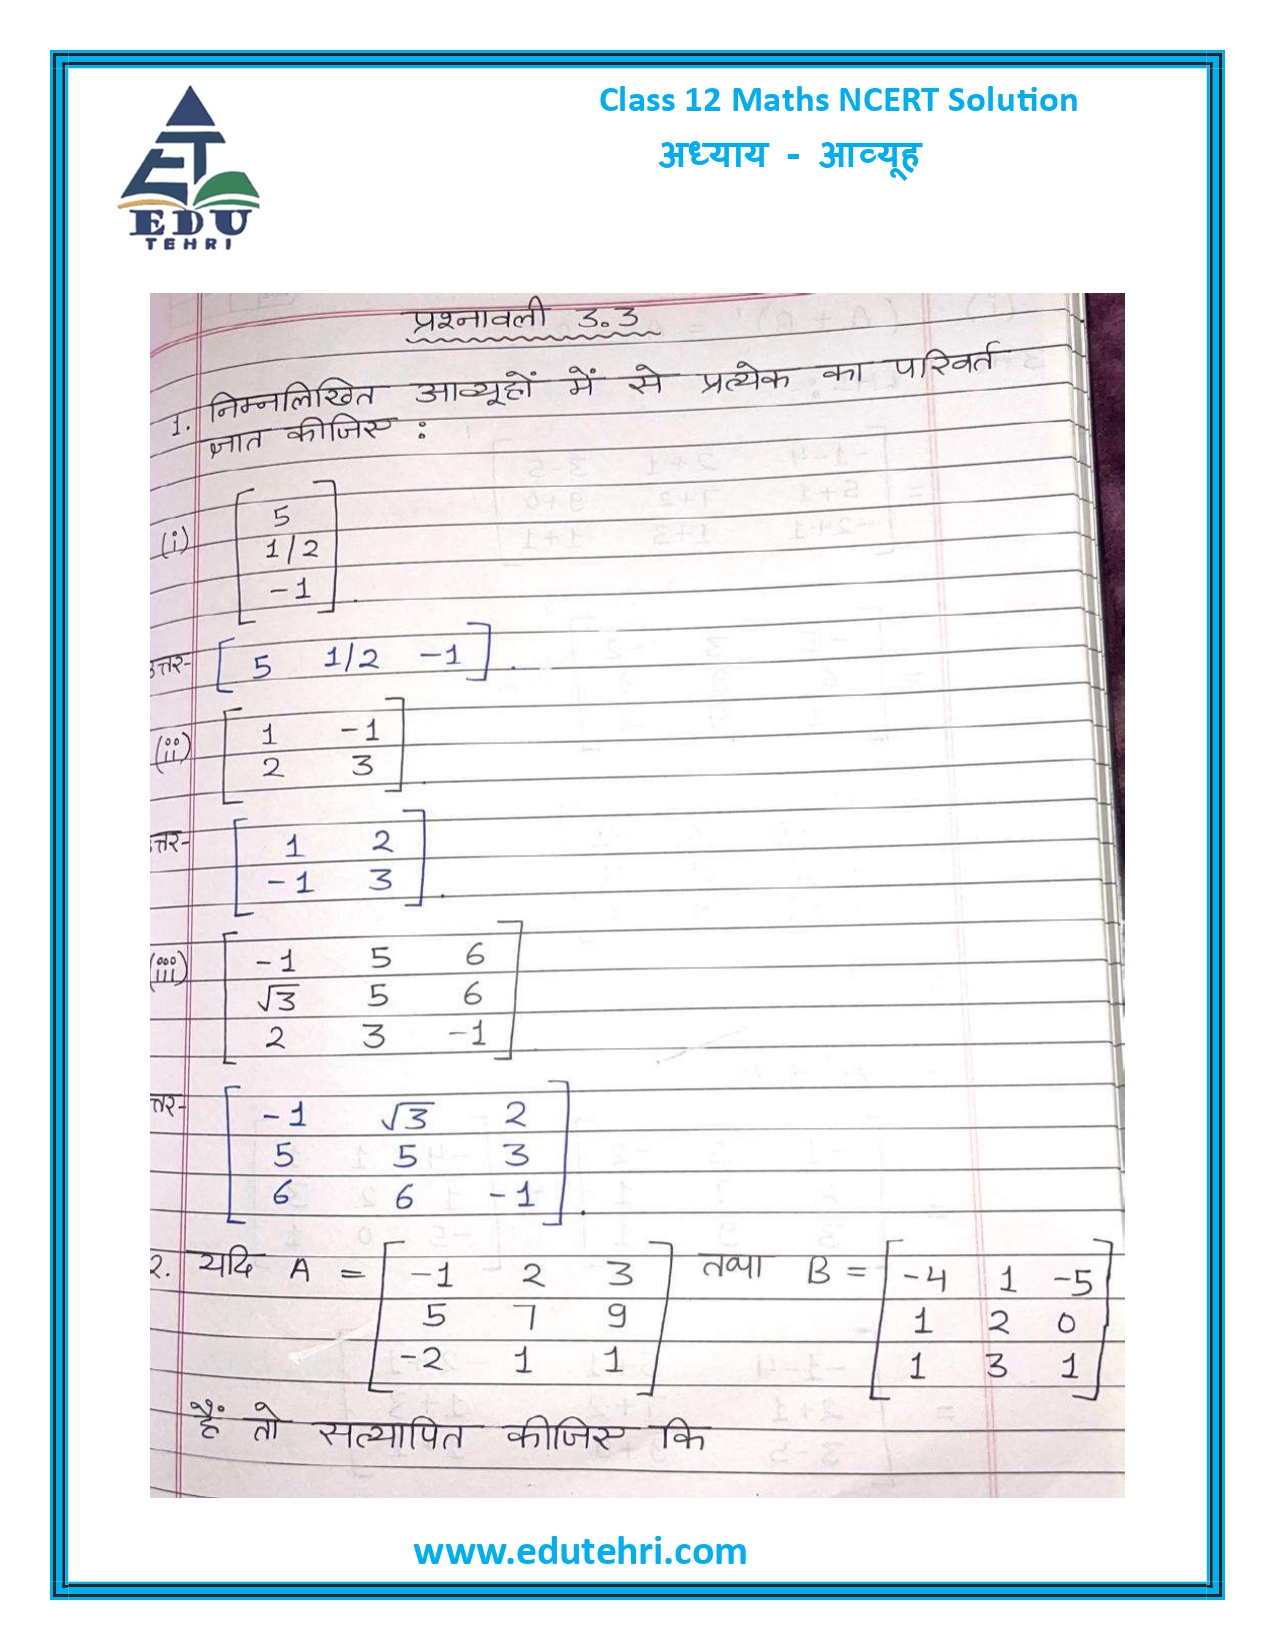 Class 12 Maths NCERT Solution
अध्याय - आव्यूह
ET
EDU
TEHRI
प्रश्नावली 3.3
1. निम्नलिखित आव्यूहों में से प्रत्येक का परिवर्त
ज्ञात कीजिए :
(i) [ 5
1/2
-1 ] .
त्तर- [ 5 1/2 -1 ] .
(ii) [ 1 -1
2 3 ] .
त्तर- [ 1 2
-1 3 ] .
(iii) [ -1 5 6
√3 5 6
2 3 -1 ] .
त्तर- [ -1 √3 2
5 5 3
6 6 -1 ] .
2. यदि A = [ -1 2 3 तथा B = [ -4 1 -5
5 7 9 1 2 0
-2 1 1 ] 1 3 1 ]
हैं तो सत्यापित कीजिए कि
www.edutehri.com